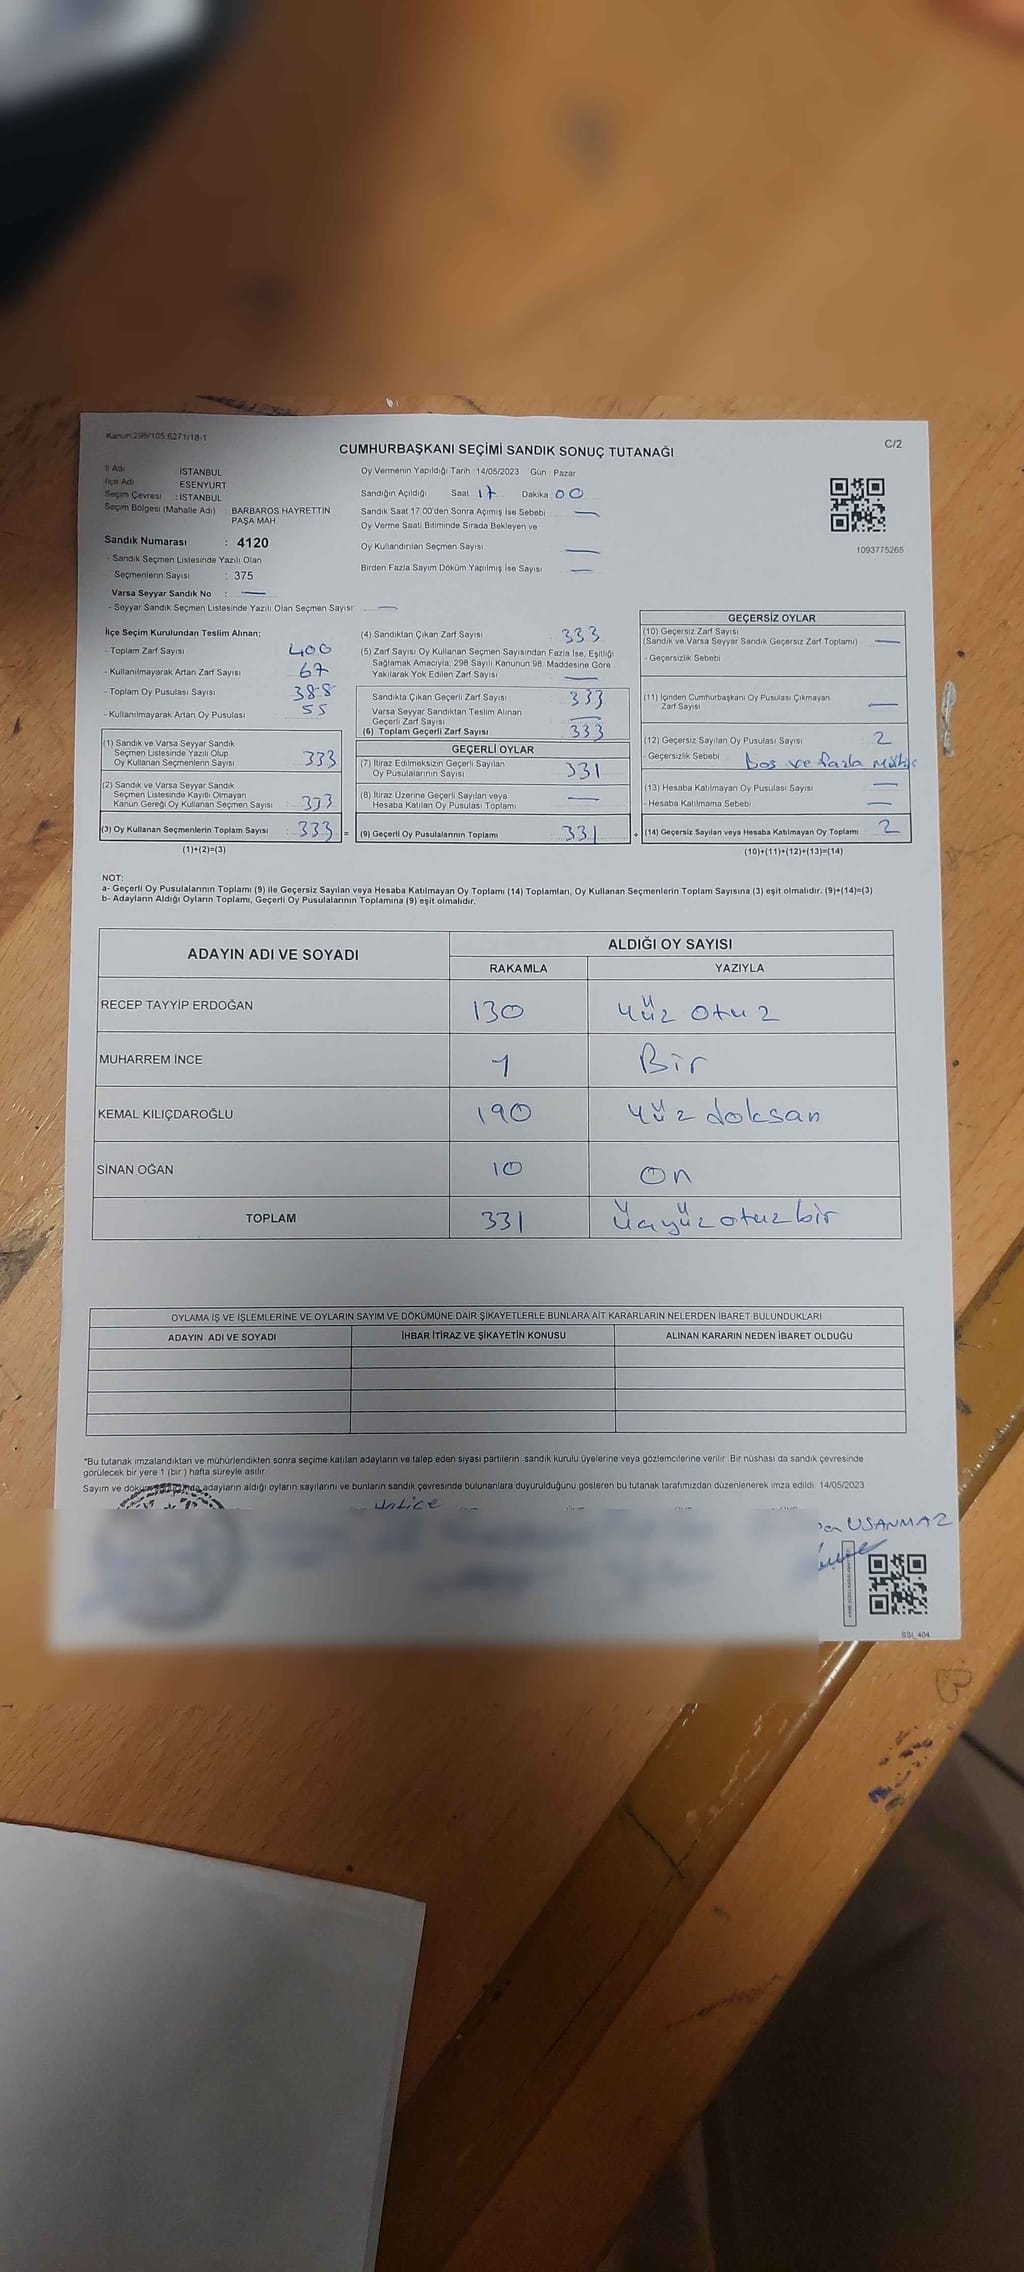 Kanun:298/105,6271/18-1
C/2
CUMHURBAŞKANI SEÇİMİ SANDIK SONUÇ TUTANAĞI
İl Adı İSTANBUL
İlçe Adı ESENYURT
Seçim Çevresi : İSTANBUL
Seçim Bölgesi (Mahalle Adı) : BARBAROS HAYRETTİN PAŞA MAH
Sandık Numarası : 4120
- Sandık Seçmen Listesinde Yazılı Olan
Seçmenlerin Sayısı : 375
Varsa Seyyar Sandık No : —
- Seyyar Sandık Seçmen Listesinde Yazılı Olan Seçmen Sayısı —
Oy Vermenin Yapıldığı Tarih : 14/05/2023 Gün : Pazar
Sandığın Açıldığı Saat 17 Dakika 00
Sandık Saat 17.00'den Sonra Açımış İse Sebebi —
Oy Verme Saati Bitiminde Sırada Bekleyen ve
Oy Kullandırılan Seçmen Sayısı —
Birden Fazla Sayım Döküm Yapılmış İse Sayısı —
1093775265
İlçe Seçim Kurulundan Teslim Alınan;
- Toplam Zarf Sayısı 400
- Kullanılmayarak Artan Zarf Sayısı 67
- Toplam Oy Pusulası Sayısı 388
- Kullanılmayarak Artan Oy Pusulası 55
(1) Sandık ve Varsa Seyyar Sandık
Seçmen Listesinde Yazılı Olup
Oy Kullanan Seçmenlerin Sayısı 333
(2) Sandık ve Varsa Seyyar Sandık
Seçmen Listesinde Kayıtlı Olmayan
Kanun Gereği Oy Kullanan Seçmen Sayısı 333
(3) Oy Kullanan Seçmenlerin Toplam Sayısı : 333 =
(1)+(2)=(3)
(4) Sandıktan Çıkan Zarf Sayısı 333
(5) Zarf Sayısı Oy Kullanan Seçmen Sayısından Fazla İse, Eşitliği
Sağlamak Amacıyla, 298 Sayılı Kanunun 98. Maddesine Göre
Yakılarak Yok Edilen Zarf Sayısı —
Sandıkta Çıkan Geçerli Zarf Sayısı 333
Varsa Seyyar Sandıktan Teslim Alınan
Geçerli Zarf Sayısı —
(6) Toplam Geçerli Zarf Sayısı 333
GEÇERLİ OYLAR
(7) İtiraz Edilmeksizin Geçerli Sayılan
Oy Pusulalarının Sayısı 331
(8) İtiraz Üzerine Geçerli Sayılan veya
Hesaba Katılan Oy Pusulası Toplamı —
(9) Geçerli Oy Pusulalarının Toplamı 331 +
GEÇERSİZ OYLAR
(10) Geçersiz Zarf Sayısı
(Sandık ve Varsa Seyyar Sandık Geçersiz Zarf Toplamı) —
- Geçersizlik Sebebi
(11) İçinden Cumhurbaşkanı Oy Pusulası Çıkmayan
Zarf Sayısı —
(12) Geçersiz Sayılan Oy Pusulası Sayısı 2
- Geçersizlik Sebebi boş ve fazla
(13) Hesaba Katılmayan Oy Pusulası Sayısı —
- Hesaba Katılmama Sebebi —
(14) Geçersiz Sayılan veya Hesaba Katılmayan Oy Toplamı 2
(10)+(11)+(12)+(13)=(14)
NOT:
a- Geçerli Oy Pusulalarının Toplamı (9) ile Geçersiz Sayılan veya Hesaba Katılmayan Oy Toplamı (14) Toplamları, Oy Kullanan Seçmenlerin Toplam Sayısına (3) eşit olmalıdır. (9)+(14)=(3)
b- Adayların Aldığı Oyların Toplamı, Geçerli Oy Pusulalarının Toplamına (9) eşit olmalıdır.
ADAYIN ADI VE SOYADI ALDIĞI OY SAYISI
RAKAMLA YAZIYLA
RECEP TAYYİP ERDOĞAN 130 yüz otuz
MUHARREM İNCE 1 Bir
KEMAL KILIÇDAROĞLU 190 yüz doksan
SİNAN OĞAN 10 on
TOPLAM 331 üçyüzotuzbir
OYLAMA İŞ VE İŞLEMLERİNE VE OYLARIN SAYIM VE DÖKÜMÜNE DAİR ŞİKAYETLERLE BUNLARA AİT KARARLARIN NELERDEN İBARET BULUNDUKLARI
ADAYIN ADI VE SOYADI İHBAR İTİRAZ VE ŞİKAYETİN KONUSU ALINAN KARARIN NEDEN İBARET OLDUĞU
*Bu tutanak imzalandıktan ve mühürlendikten sonra seçime katılan adayların ve talep eden siyasi partilerin sandık kurulu üyelerine veya gözlemcilerine verilir. Bir nüshası da sandık çevresinde
görülecek bir yere 1 (bir ) hafta süreyle asılır.
Sayım ve döküm adayların aldığı oyların sayılarını ve bunların sandık çevresinde bulunanlara duyurulduğunu gösteren bu tutanak tarafımızdan düzenlenerek imza edildi. 14/05/2023
Hatice
USANMAZ
SSI_404